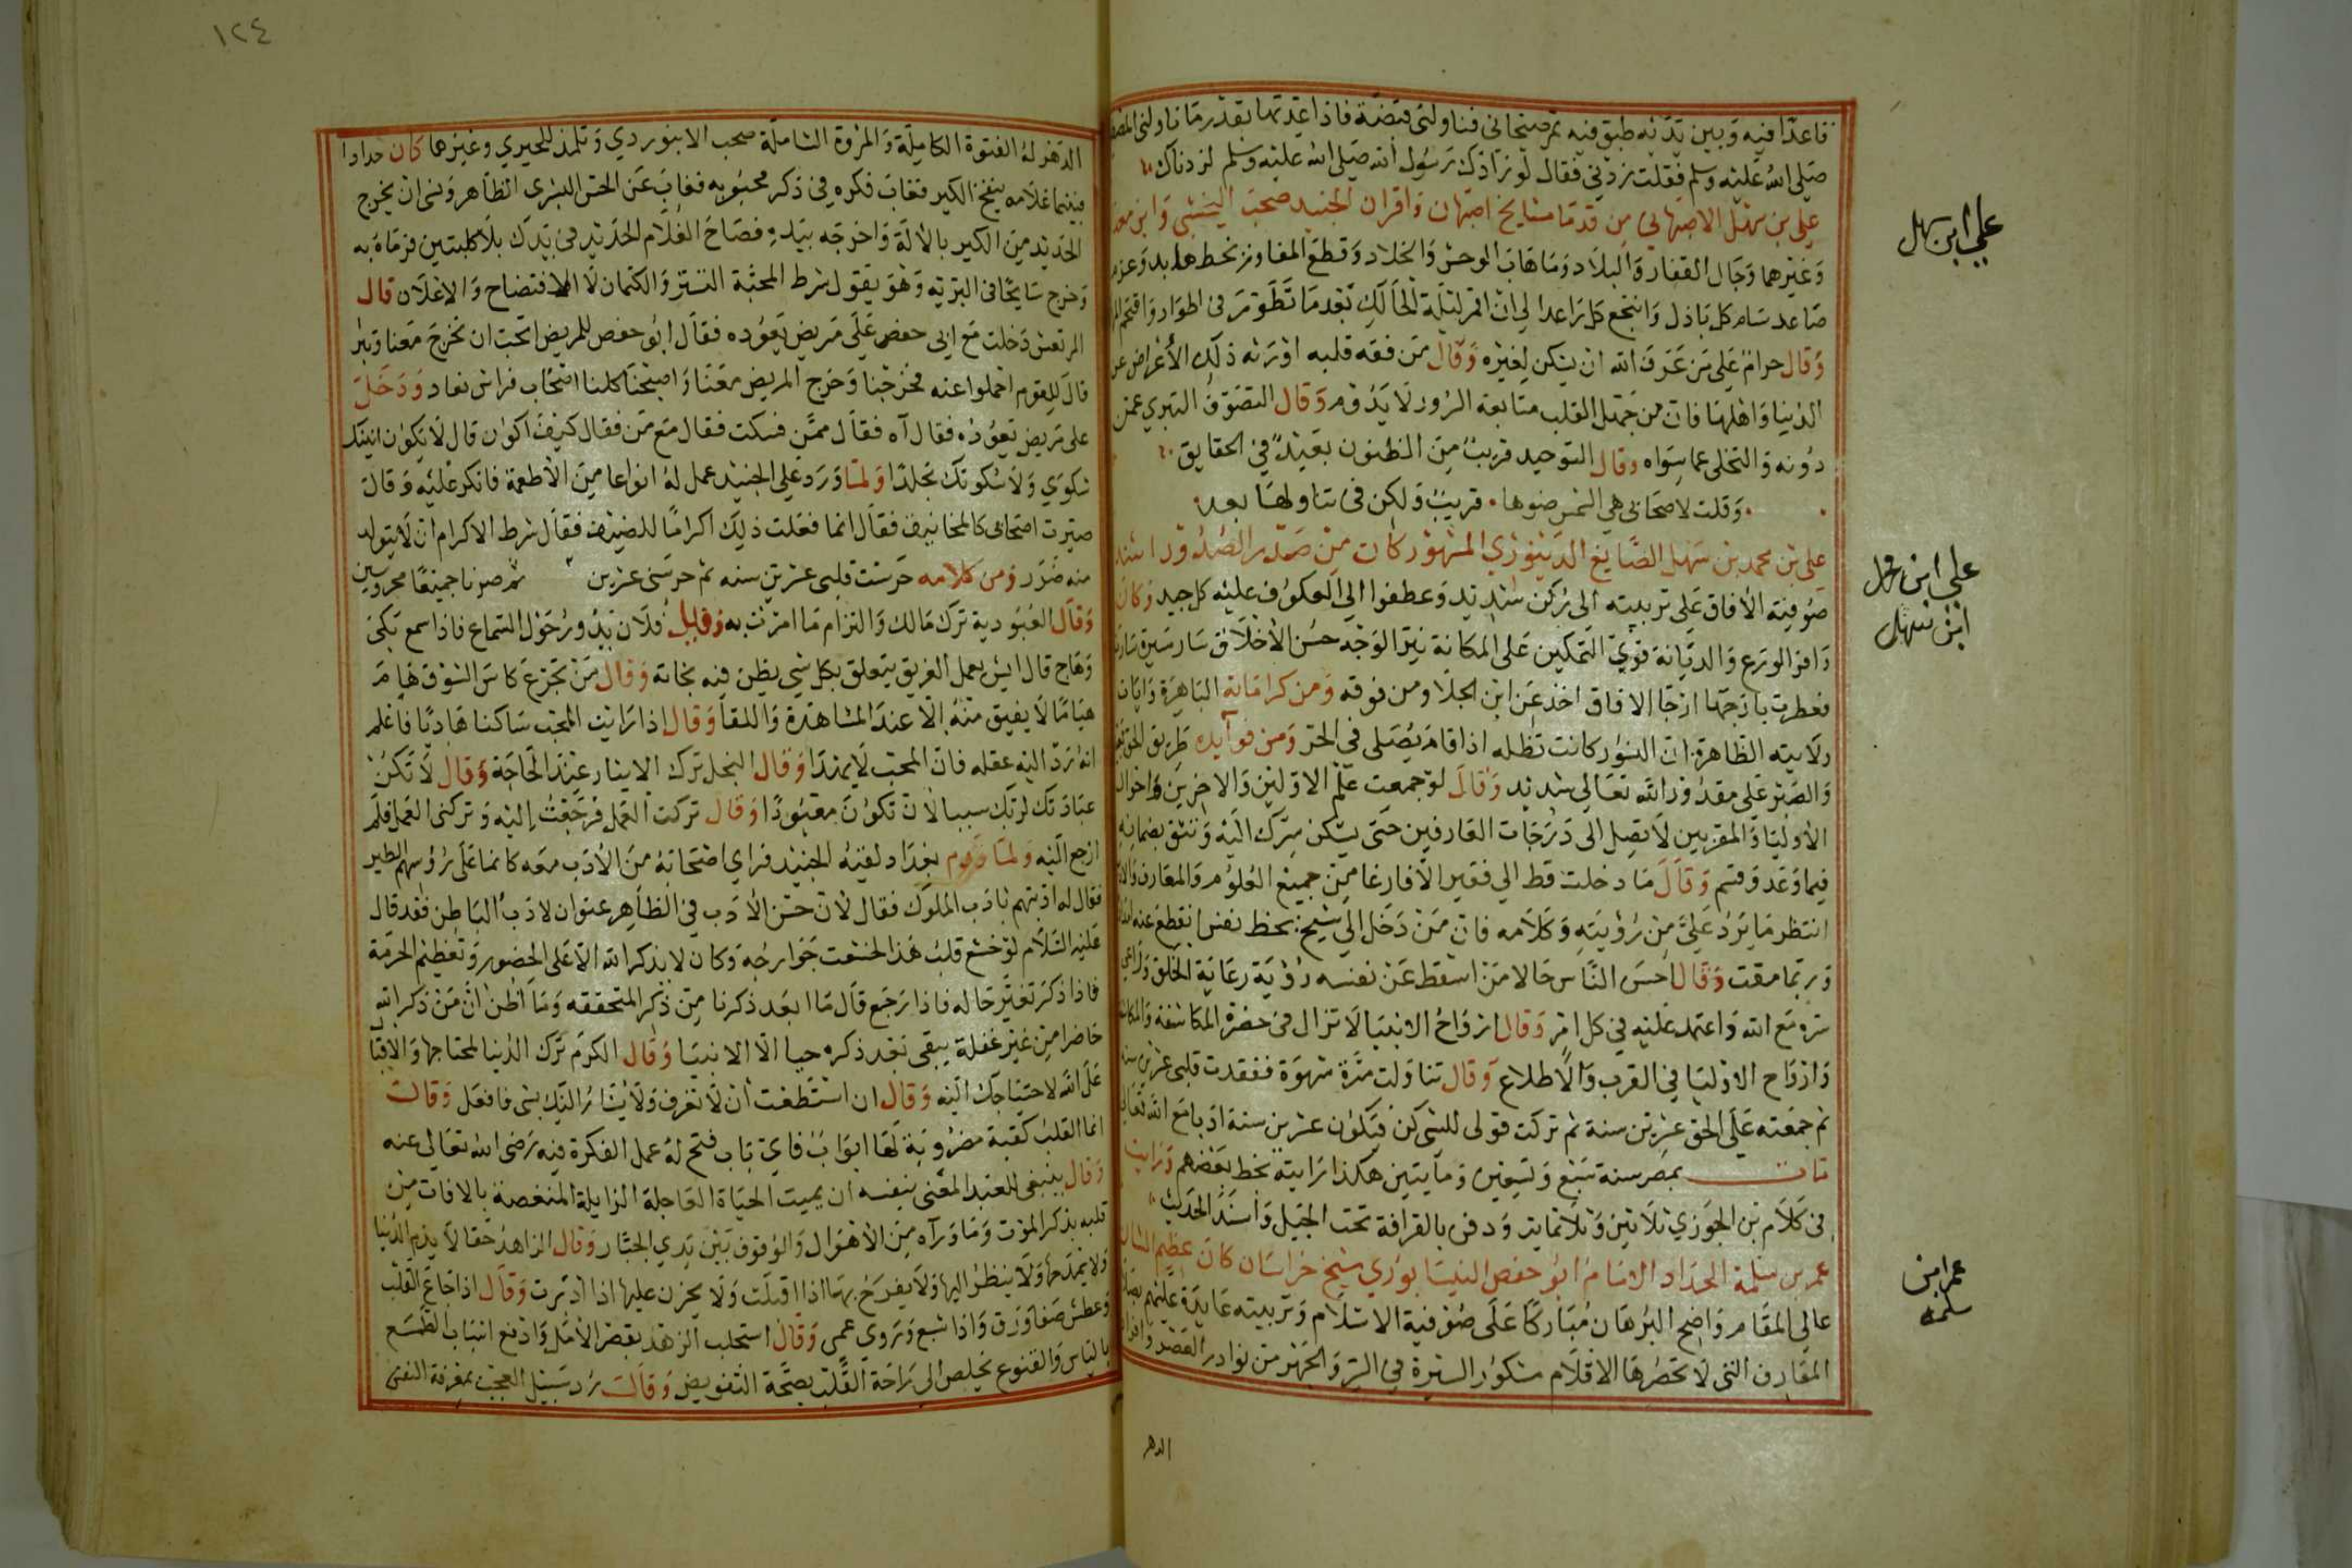 قاعدا فيه وبين يديه طبق فيه تمر صيحاني فناولني قبضة فاذا عدتها بقدر ما ناولني المصطفى
صلى الله عليه وسلم فقلت زدني فقال لو زادك رسول الله صلى الله عليه وسلم لزدناك
علي بن سهل الاصبهاني من قدما مشايخ اصبهان واقران الجنيد صحب وابن معدان
وغيرهما وجال القفار والبلاد وما هاب الوحش والجلاد وقطع المفاوز
صاعد كل باذل وانتجع كل
وقال حرام على من عرف الله ان يسكن لغيره وقال من فقه قلبه اورثه ذلك الاعراض عن
الدنيا واهلها فان من جهل القلب متابعة السرور لا يدوم وقال التصوف التبري عمن
دونه والتخلى عما سواه وقال التوحيد قريب من الظنون بعيد في الحقايق
وقلت لاصحابي هي الشمس ضوها قريب ولكن في تناولها بعد
علي بن محمد بن سهل الصايغ الدينوري المشهور كان من صدر الصدور
صوفية الافاق على تربيته الى ركن شديد وعطفوا الى العكوف عليه كل جيد وكان
وافر الورع والديانة قوي التمكين على المكانة نير الوجه حسن الاخلاق سار سيرة
فعطرت بارجها ارجا الافاق اخذ عن ابن الجلا ومن فوقه ومن كراماته الباهرة وايات
ولايته الظاهرة ان النسور كانت تظله اذا قام يصلى في الحر ومن فوايده طريق الحق
والصبر على مقدور الله تعالى شديد وقال لو جمعت علم الاولين والاخرين واحوال
الاوليا والمقربين لا تصل الى درجات العارفين حتى يسكن سرك اليه وتثق بضمانه
فيما وعد وقسم وقال ما دخلت قط الى فقير الا فارغا من جميع العلوم والمعارف
انتظر ما يرد علي من رؤيته وكلامه فان من دخل الى شيخ بحظ نفس انقطع عنه
وربما مقت وقال احسن الناس حالا من اسقط عن نفسه رؤية رعاية الخلق
سره مع الله واعتمد عليه في كل امر وقال ارواح الانبيا لا تزال في حضرة المكاشفة
وارواح الاوليا في القرب والاطلاع وقال تناولت مرة شهوة ففقدت قلبي عشرين سنة
ثم جمعته على الحق عشرين سنة ثم تركت قولى للشي كن فيكون عشرين سنة ادبا مع الله تعالى
مات بمصر سنة سبع وتسعين ومايتين هكذا رايته بخط بعضهم ورايت
في كلام بن الجوزي ثلاثين وثلاثماية ودفن بالقرافة تحت الجبل واسند الحديث
عمر بن سلمة الحداد الامام ابو حفص النيسابوري شيخ خراسان كان عظيم الشان
عالي المقام واضح البرهان مباركا على صوفية الاسلام وتربيته عايدة عليهم
المعارف التي لا تحصرها الاقلام مشكور السيرة في السر والجهر من نوادر العصر
الدهر
علي ابن سهل
علي ابن محمد
ابن سهل
عمر ابن
سلمه
١٢٤
الدهر له الفتوة الكاملة والمروة الشاملة صحب الابيوردي وتلمذ للحيري وغيرها كان حدادا
فبينما غلامه ينفخ الكير فغاب فكره في ذكر محبوبه فغاب عن الحس البشرى الظاهر ونسي ان يخرج
الحديد من الكير بالالة واخرجه بيده فصاح الغلام الحديد في يدك بلا كلبتين فرماه به
وخرج سايحا في البرية وهو يقول شرط المحبة التستر والكتمان لا الافتضاح والاعلان قال
المرتعش دخلت مع ابي حفص على مريض يعوده فقال ابو حفص للمريض اتحب ان تخرج معنا
قال للقوم احملوا عنه فخرجنا وخرج المريض معنا واصبحنا كلنا اصحاب فراش نعاد ودخل
على مريض يعوده فقال آه فقال ممن فسكت فقال مع من فقال كيف اكون قال لا يكون انينك
شكوى ولا سكوتك تجلدا ولما ورد على الجنيد عمل له انواعا من الاطعمة فانكر عليه وقال
صيرت اصحابي كالمخانيث فقال انما فعلت ذلك اكراما للضيف فقال شرط الاكرام ان لا يتولد
منه ضرر ومن كلامه حرست قلبي عشرين سنه ثم حرسني عشرين ثم صرنا جميعا محروسين
وقال العبودية ترك مالك والتزام ما امرت به وقيل فلان يدور حول السماع فاذا سمع بكى
وهاج قال ايش يعمل الغريق يتعلق بكل شي يظن فيه نجاته وقال من تجرع كاس الشوق هام
هياما لا يفيق منه الا عند المشاهدة واللقا وقال اذا رايت المحب ساكنا هاديا فاعلم
انه رد اليه عقله فان المحب لا يهدا وقال البخل ترك الايثار عند الحاجة وقال لا تكن
عبادتك لربك سببا لان تكون معبودا وقال تركت العمل فرجعت اليه وتركني العمل فلم
ارجع اليه ولما قدم بغداد لقيه الجنيد فراي اصحابه من الادب معه كانما على رؤسهم الطير
فقال له ادبتهم بادب الملوك فقال لان حسن الادب في الظاهر عنوان لادب الباطن فقد قال
عليه السلام لو خشع قلب هذا لخشعت جوارحه وكان لا يذكر الله الا على الحضور وتعظيم الحرمة
فاذا ذكر تغير حاله فاذا رجع قال ما ابعد ذكرنا من ذكر المتحققه وما اظن ان من ذكر الله
حاضرا من غير غفلة يبقى بعد ذكره حيا الا الانبيا وقال الكرم ترك الدنيا لمحتاجها والاقبال
على الله لاحتياجك اليه وقال ان استطعت ان لا تعرف ولا يشار اليك بشي فافعل وقال
انما القلب كقبة مضروبة لها ابواب فاي باب فتح له عمل الفكرة فيه رضى الله تعالى عنه
وقال ينبغى للعبد المعنى بنفسه ان يميت الحياة العاجلة الزايلة المنغصة بالافات من
قلبه بذكر الموت وما ورآه من الاهوال والوقوف بين يدي الجبار وقال الزاهد حقا لا يذم الدنيا
ولا يمدحها ولا ينظر اليها ولا يفرح بها اذا اقبلت ولا يحزن عليها اذا ادبرت وقال اذا جاع القلب
وعطش صفا ورق واذا شبع وروى عمى وقال استجلب الزهد بقصر الامل وادفع اسباب الطمع
بالياس والقنوع تخلص الى راحة القلب بصحة التفويض وقال رد سبيل العجب بمعرفة النفس